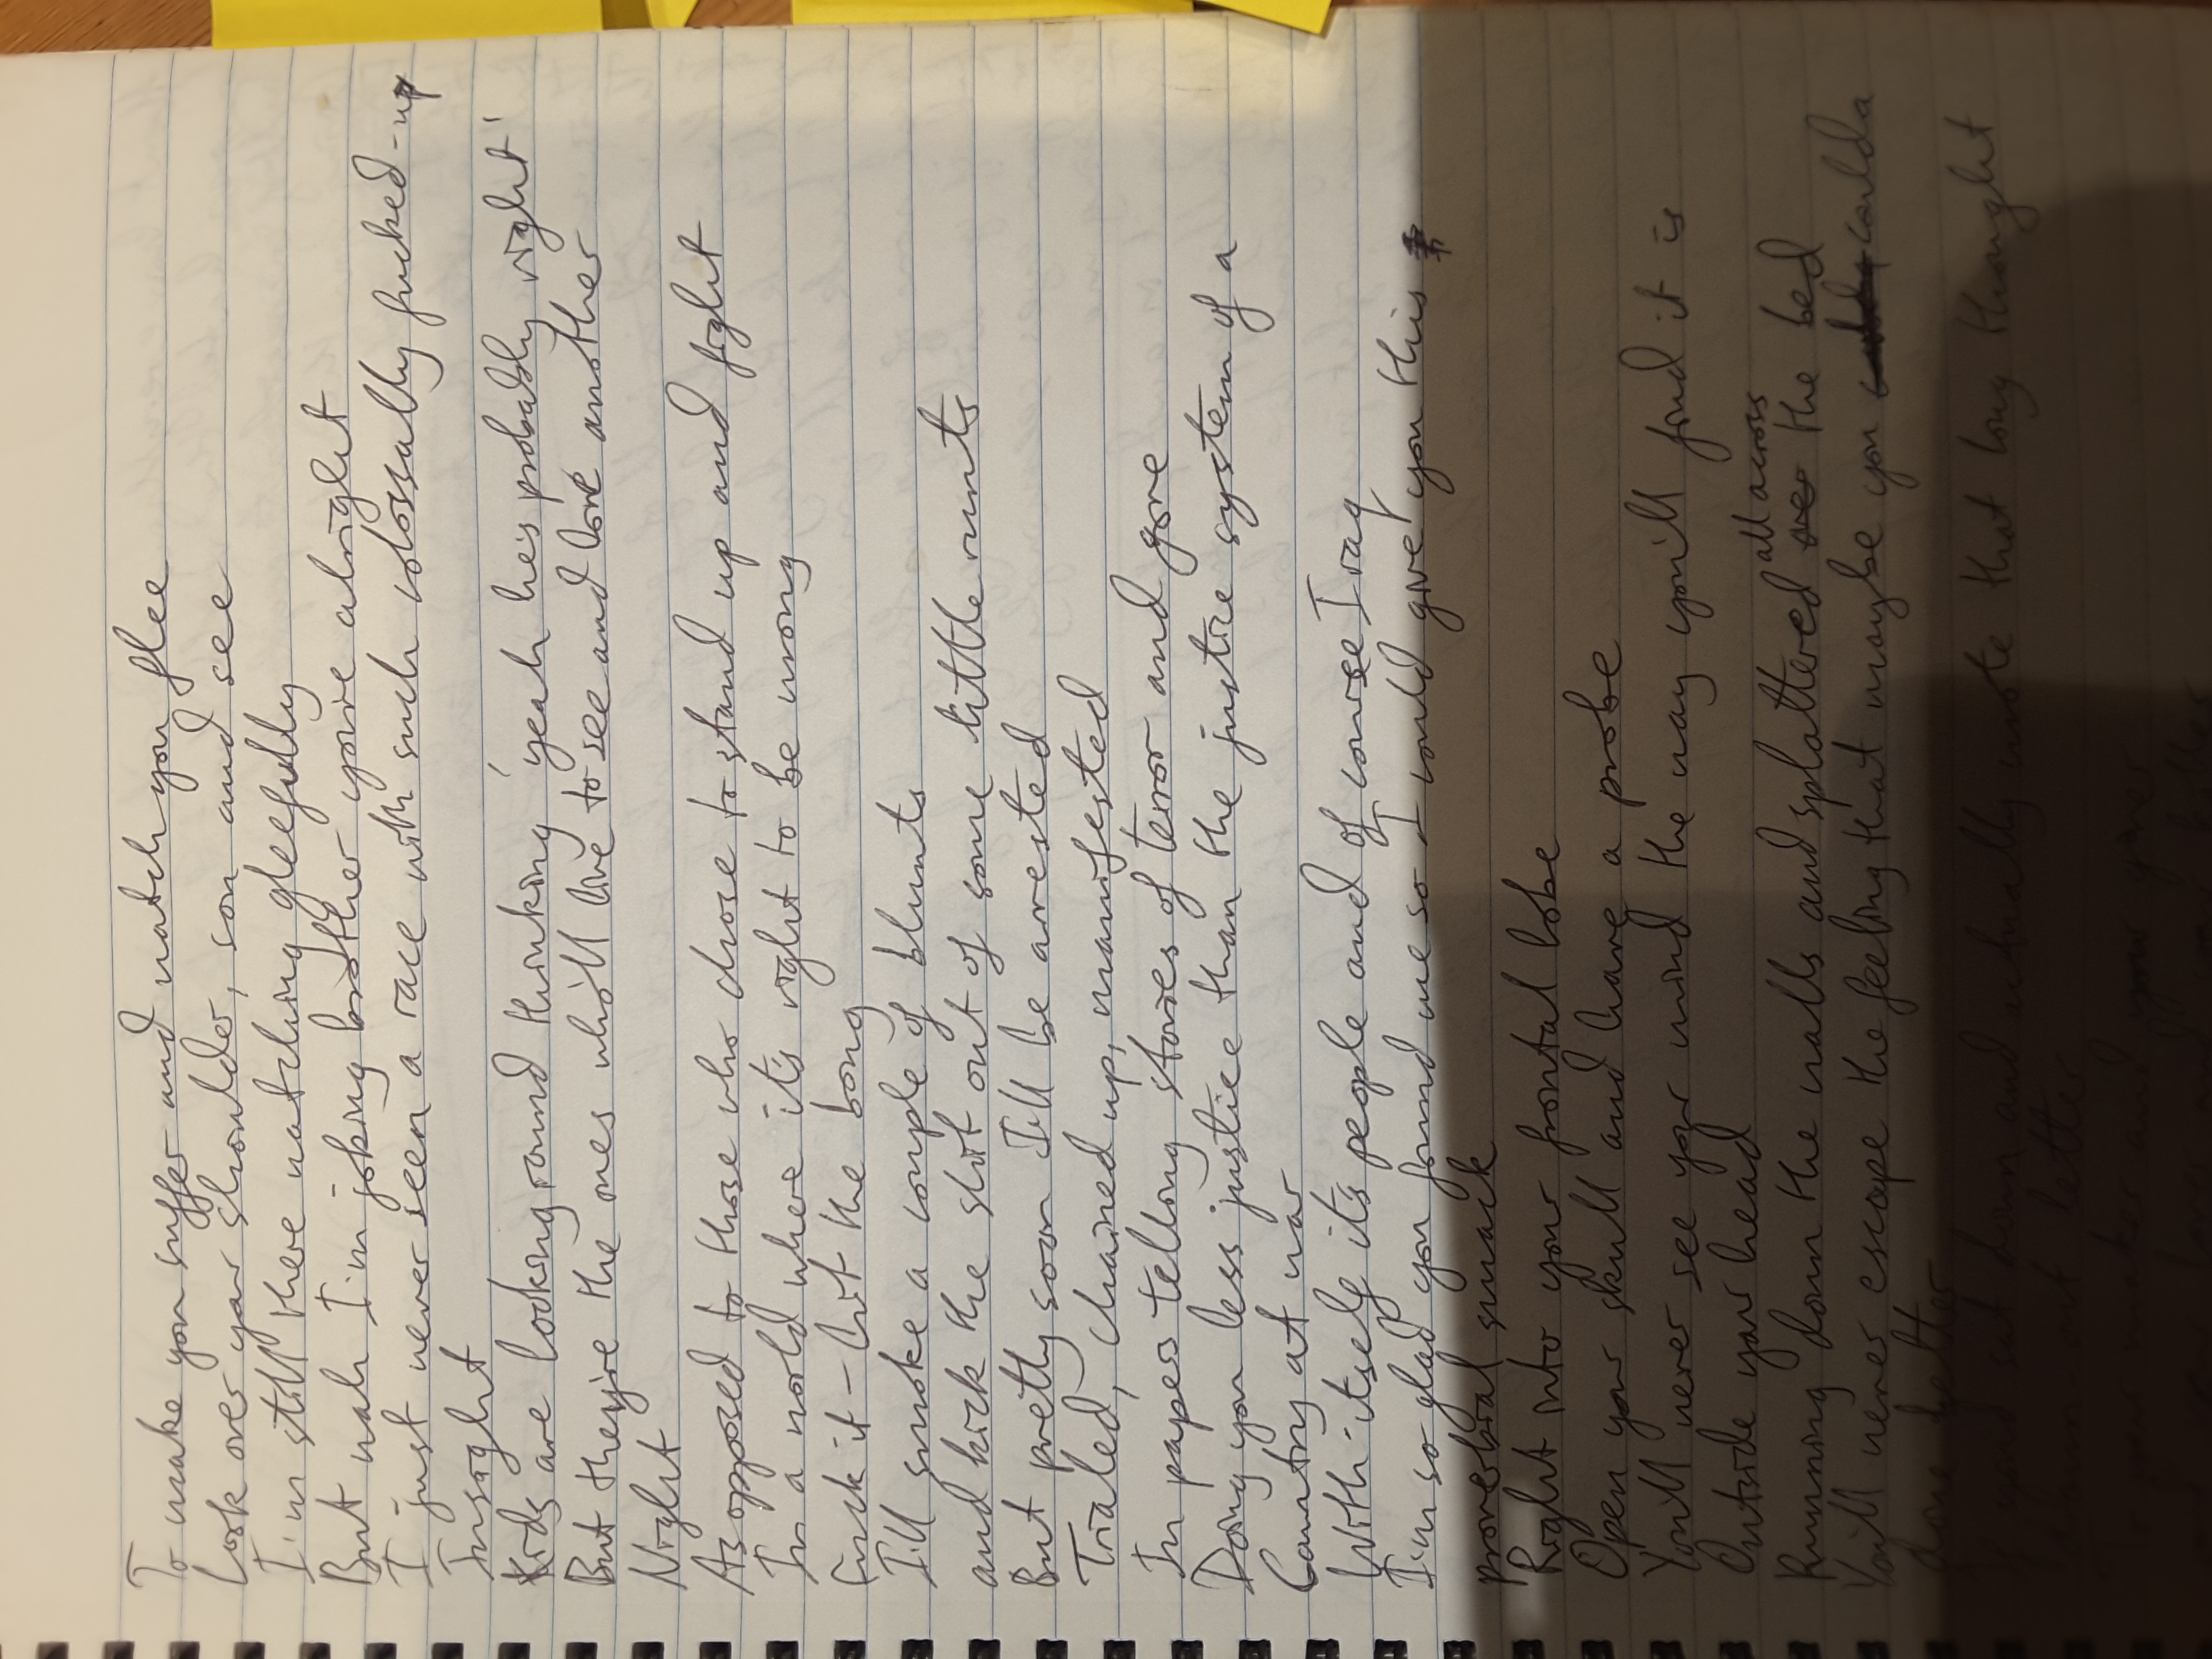 To make you suffer and watch you flee
Look over your shoulder, son and see
I'm still there watching gleefully
But nah I'm joking brother you're alright
I just never seen a race with such colossally fucked-up
Insight
Kids are looking round thinking 'yeah he's probably right'
But they're the ones who'll live to see and love another
Night
As opposed to those who chose to stand up and fight
In a world where it's right to be wrong
Fuck it - hit the bong
I'll smoke a couple of blunts
and kick the shit out of some little runts
But pretty soon I'll be arrested
Trialed, chained up, manifested
In papers telling stories of terror and gore
Doing you less justice than the justice system of a
Country at war
With itself it's people and of course Iraq
I'm so glad you found me so I could give you this
proverbial smack
Right into your frontal lobe
Open your skull and have a probe
You'll never see your mind the way you'll find it is
Outside your head
Running down the walls and splattered all across the bed
You'll never escape the feeling that maybe you coulda
done better
If you'd sat down and actually wrote that long thought
drawn-out letter
To your maker and your giver
and your lover and your killer